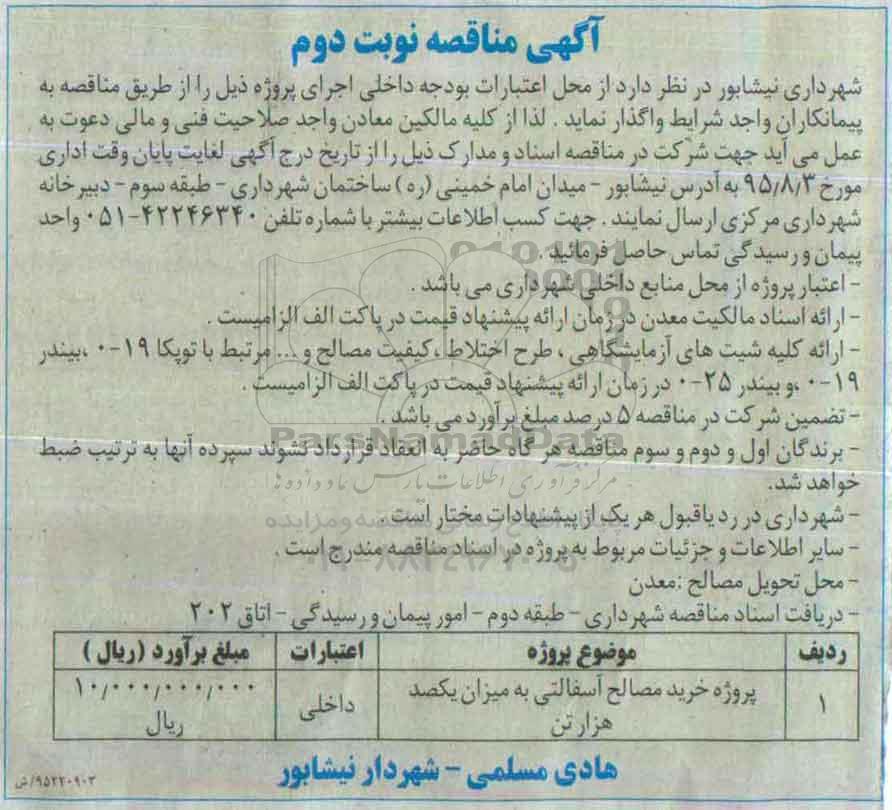 آگهی مناقصه نوبت دوم
شهرداری نیشابور در نظر دارد از محل اعتبارات بودجه داخلی اجرای پروژه ذیل را از طریق مناقصه به
پیمانکاران واجد شرایط واگذار نماید . لذا از کلیه مالکین معادن واجد صلاحیت فنی و مالی دعوت به
عمل می آید جهت شرکت در مناقصه اسناد و مدارک ذیل را از تاریخ درج آگهی لغایت پایان وقت اداری
مورخ ۹۵/۸/۳ به آدرس نیشابور - میدان امام خمینی (ره) ساختمان شهرداری - طبقه سوم - دبیرخانه
شهرداری مرکزی ارسال نمایند . جهت کسب اطلاعات بیشتر با شماره تلفن ۴۲۲۴۶۳۴۰-۰۵۱ واحد
پیمان و رسیدگی تماس حاصل فرمائید .
- اعتبار پروژه از محل منابع داخلی شهرداری می باشد .
- ارائه اسناد مالکیت معدن در زمان ارائه پیشنهاد قیمت در پاکت الف الزامیست .
- ارائه کلیه شیت های آزمایشگاهی ، طرح اختلاط ،کیفیت مصالح و ... مرتبط با توپکا ۱۹-۰ ،بیندر
۱۹-۰ ،و بیندر ۲۵-۰ در زمان ارائه پیشنهاد قیمت در پاکت الف الزامیست .
- تضمین شرکت در مناقصه ۵ درصد مبلغ برآورد می باشد .
- برندگان اول و دوم و سوم مناقصه هر گاه حاضر به انعقاد قرارداد نشوند سپرده آنها به ترتیب ضبط
خواهد شد.
- شهرداری در رد یاقبول هر یک از پیشنهادات مختار است .
- سایر اطلاعات و جزئیات مربوط به پروژه در اسناد مناقصه مندرج است .
- محل تحویل مصالح :معدن
- دریافت اسناد مناقصه شهرداری - طبقه دوم - امور پیمان و رسیدگی - اتاق ۲۰۲
ردیف موضوع پروژه اعتبارات مبلغ برآورد (ریال )
۱ پروژه خرید مصالح آسفالتی به میزان یکصد هزار تن داخلی ۱۰/۰۰۰/۰۰۰/۰۰۰ ریال
هادی مسلمی - شهردار نیشابور
۹۵۲۲۰۹۰۳/ش
ParsNamadData
مرکز فرآوری اطلاعات پارس نماد داده ها